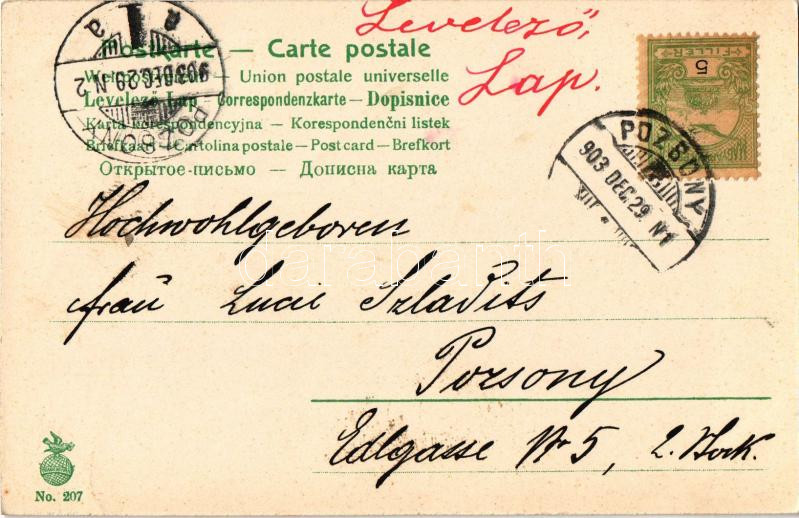 Levelező,
Lap.
Postkarte — Carte postale
Weltpostverein — Union postale universelle
Levelező Lap — Correspondenzkarte — Dopisnice
Karta korespondencyjna — Korespondenční listek
Briefkaart — Cartolina postale — Post card — Brefkort
Открытое-письмо — Дописна карта
903 DEC. 29. N 2
POZSONY
FILLÉR
5
POZSONY
903 DEC. 29. N1
Hochwohlgeboren
Frau Lucie Szladits
Pozsony
Edlgasse Nr 5, 2. Stock.
darabanth
No. 207